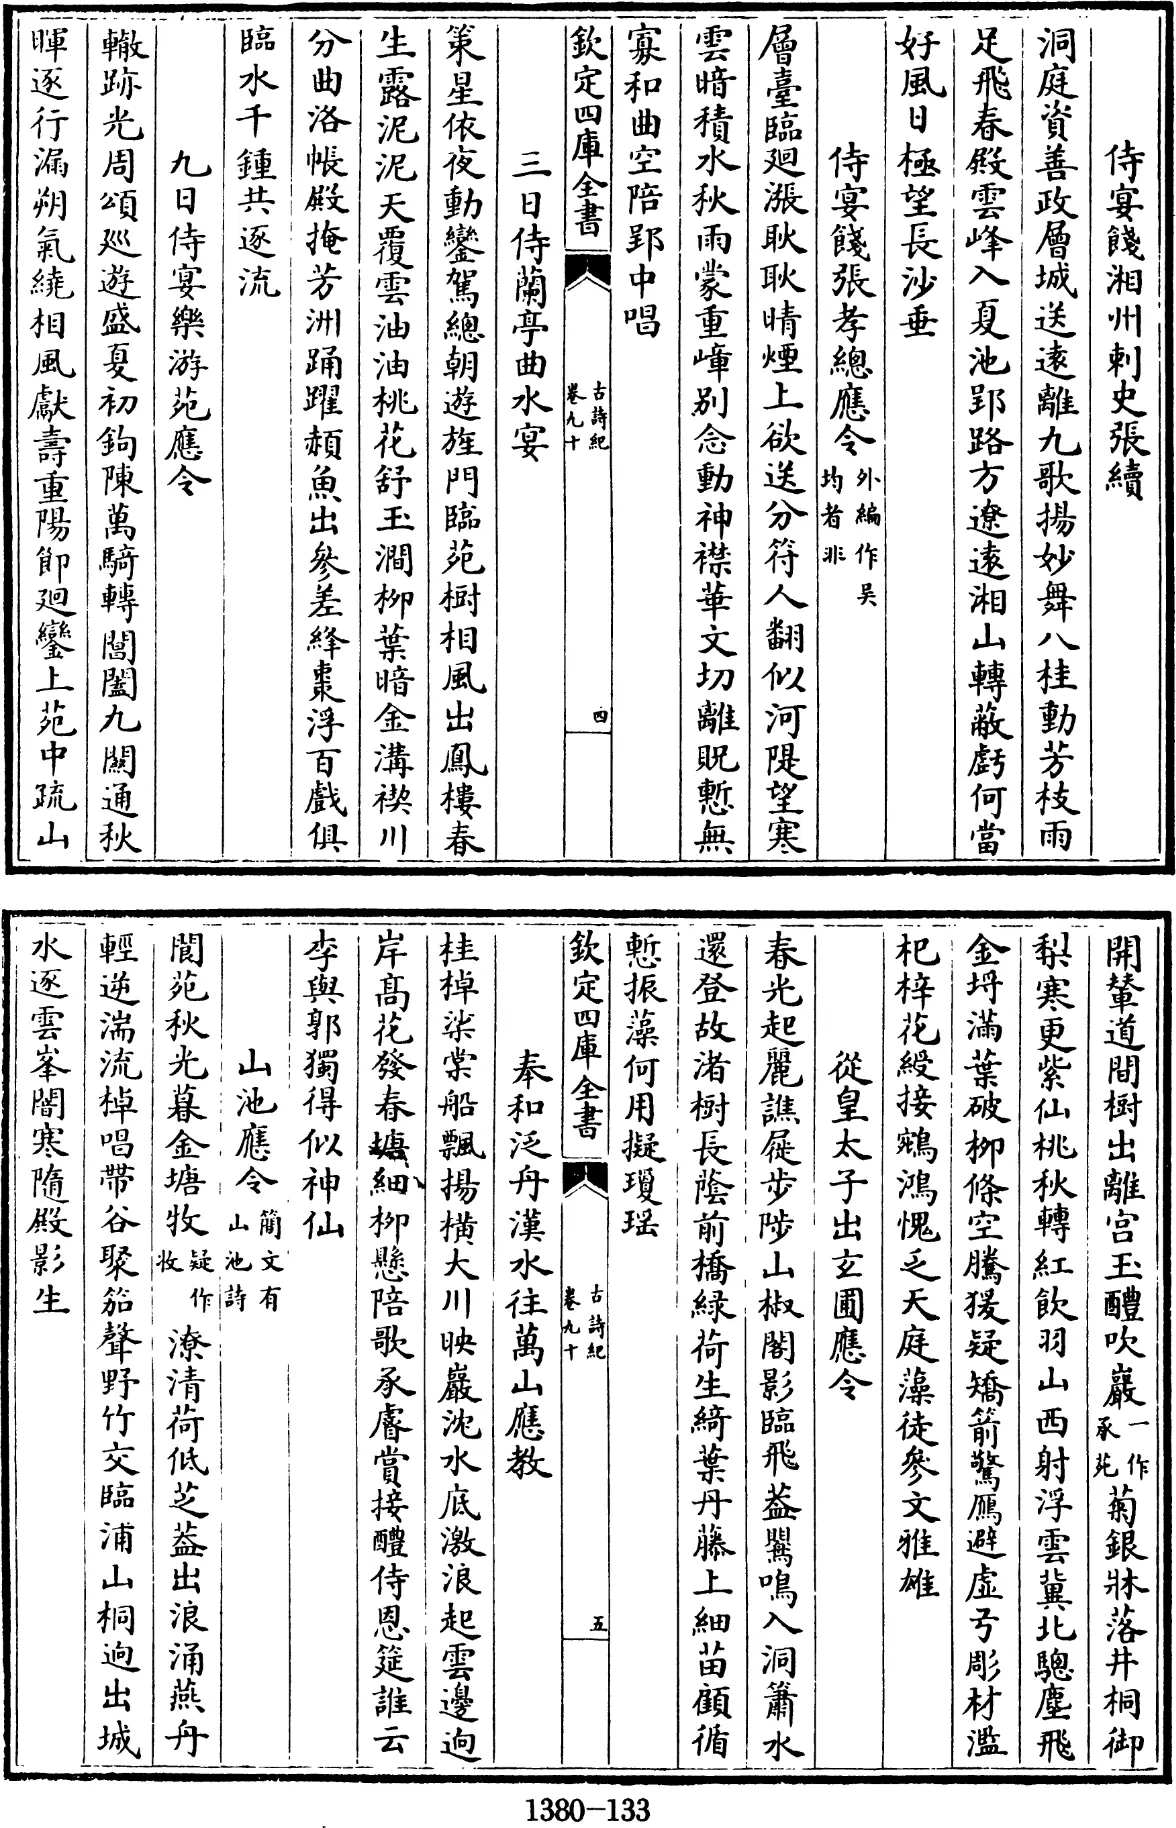 侍宴餞湘州刺史張續
洞庭資善政層城送遠離九歌揚妙舞八桂動芳枝雨
足飛春殿雲峰入夏池郢路方遼遠湘山轉蔽虧何當
好風日極望長沙垂
侍宴餞張孝總應令外編作吴均者非
層臺臨迥漲耿耿晴煙上欲送分符人翻似河隄望寒
雲暗積水秋雨蒙重嶂别念動神襟華文切離貺慙無
寡和曲空陪郢中唱
欽定四庫全書
古詩紀
卷九十
四
三日侍蘭亭曲水宴
策星依夜動鑾駕總朝遊旌門臨苑樹相風出鳳樓春
生露泥泥天覆雲油油桃花舒玉澗柳葉暗金溝禊川
分曲洛帳殿掩芳洲踊躍頳魚出參差絳棗浮百戲俱
臨水千鍾共逐流
九日侍宴樂游苑應令
轍跡光周頌巡遊盛夏初鉤陳萬騎轉閶闔九關通秋
暉逐行漏朔氣繞相風獻壽重陽節迴鑾上苑中疏山
開輦道間樹出離宫玉醴吹巖一作承苑菊銀牀落井桐御
梨寒更紫仙桃秋轉紅飲羽山西射浮雲冀北驄塵飛
金埒滿葉破柳條空騰猨疑矯箭驚鴈避虛弓彫材濫
杞梓花綬接鵷鴻愧乏天庭藻徒參文雅雄
從皇太子出玄圃應令
春光起麗譙屣步陟山椒閣影臨飛葢鸎鳴入洞簫水
還登故渚樹長蔭前橋緑荷生綺葉丹藤上細苗顧循
慙振藻何用擬瓊瑶
欽定四庫全書
古詩紀
卷九十
五
奉和泛舟漢水往萬山應教
桂棹桬棠船飄揚横大川映巖沈水底激浪起雲邊迥
岸高花發春塘細柳懸陪歌承睿賞接醴侍恩筵誰云
李與郭獨得似神仙
山池應令簡文有山池詩
閬苑秋光暮金塘牧疑作收潦清荷低芝葢出浪涌燕舟
輕逆湍流棹唱帶谷聚笳聲野竹交臨浦山桐迥出城
水逐雲峯闇寒隨殿影生
1380-133